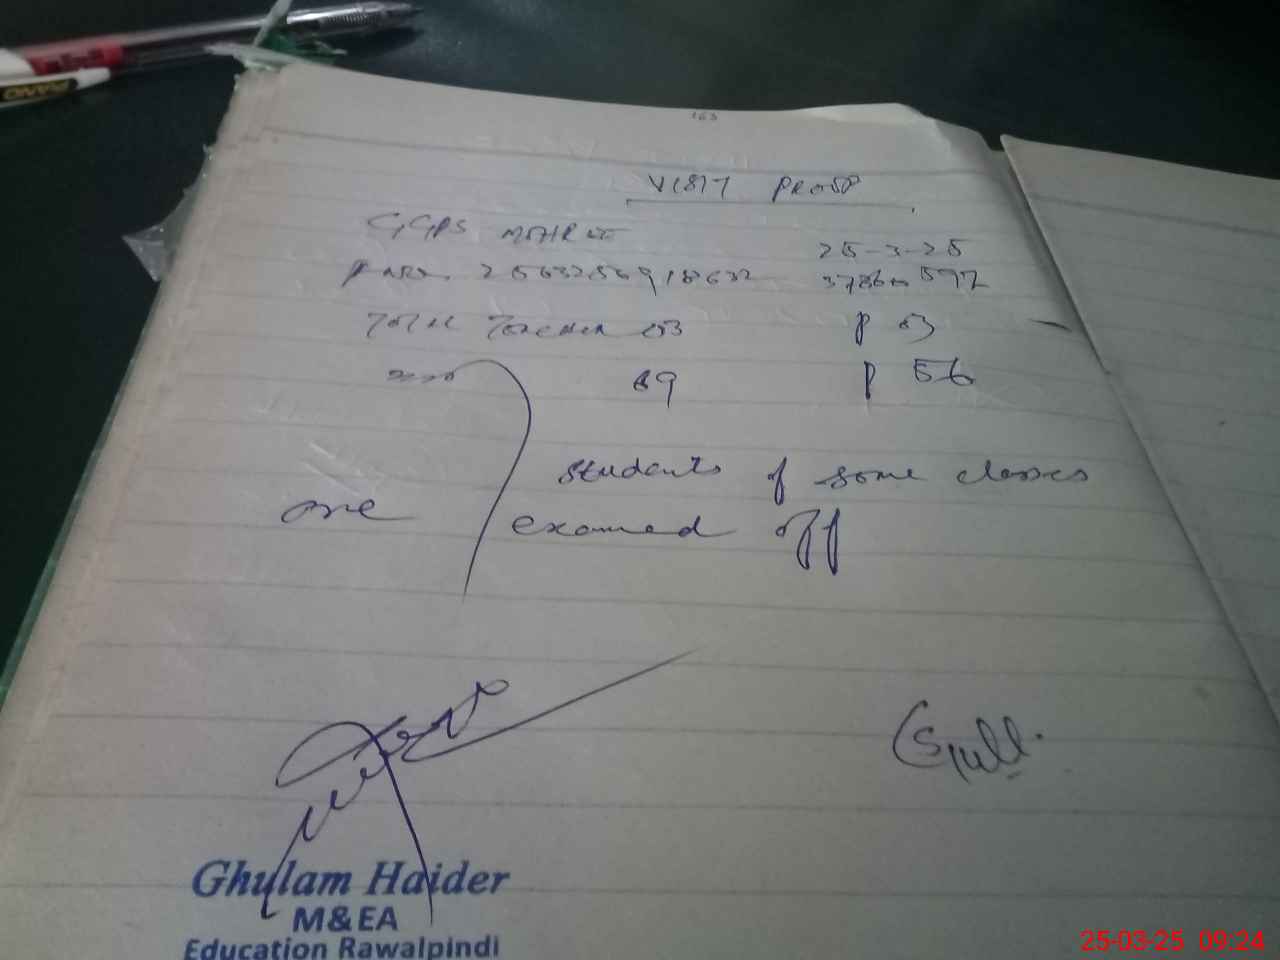 163
VISIT PROOF
GGPS MOHR
25-3-25
Total Teacher 03 P 03
89 P 56
Students of some classes
are examed off
Gull.
Ghulam Haider
M&EA
Education Rawalpindi
25-03-25 09:24
PIANO